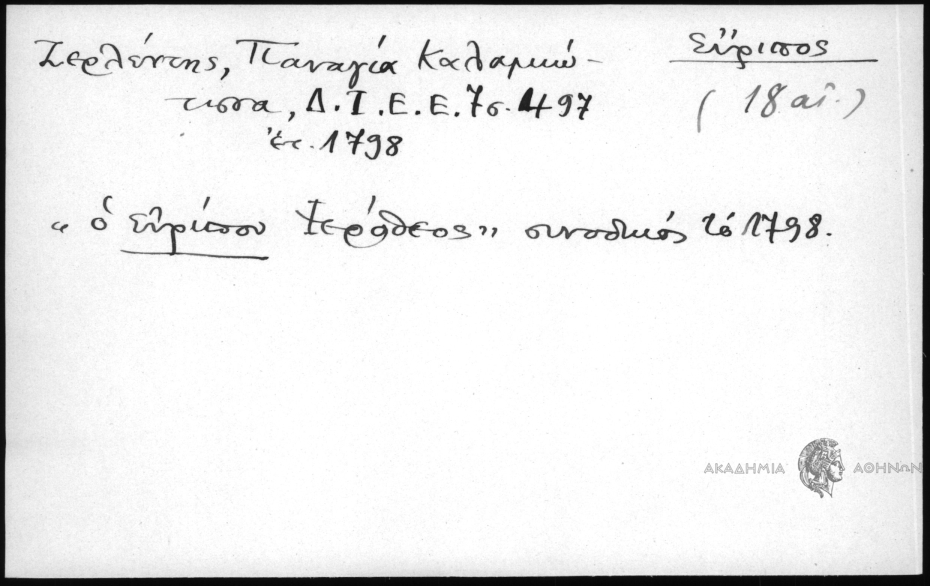 Ζερλέντης, Παναγία Καλαμιώ-
τισσα, Δ.Ι.Ε.Ε. 7 σ. 497
ἐτ. 1798
Εὔριπος
(18 αἰ.)
"ὁ Εὐρίπου Ἱερόθεος" συνοδικός τό 1798.
ΑΚΑΔΗΜΙΑ ΑΘΗΝΩΝ